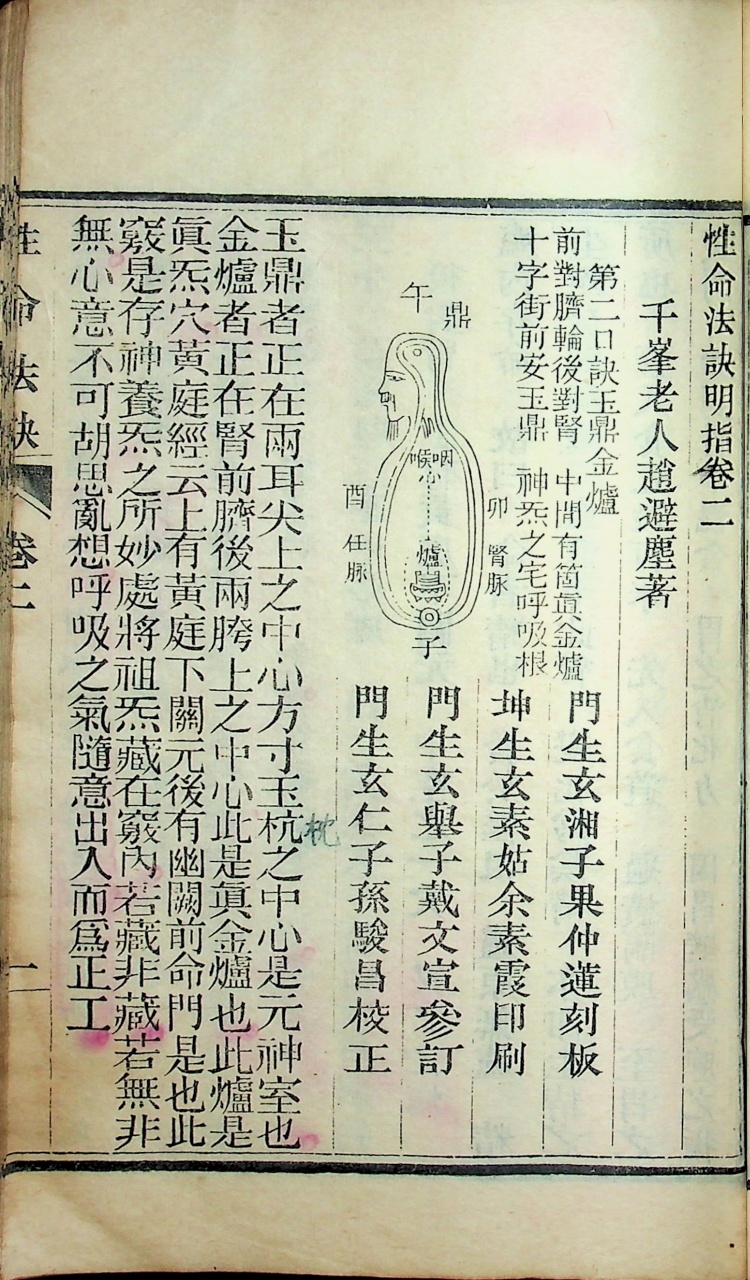 性命法訣明指卷二
千峯老人趙避塵著
第二口訣玉鼎金爐
前對臍輪後對腎　中間有箇眞金爐
十字街前安玉鼎　神炁之宅呼吸根
午
鼎
咽喉
心
爐
卯
腎脉
酉
任脉
子
門生玄湘子果仲蓮刻板
坤生玄素姑余素霞印刷
門生玄舉子戴文宣參訂
門生玄仁子孫駿昌校正
枕
玉鼎者正在兩耳尖上之中心方寸玉杭之中心是元神室也
金爐者正在腎前臍後兩胯上之中心此是眞金爐也此爐是
眞炁穴黃庭經云上有黃庭下關元後有幽闕前命門是也此
竅是存神養炁之所妙處將祖炁藏在竅內若藏非藏若無非
無心意不可胡思亂想呼吸之氣隨意出入而爲正工
性命法訣
卷二
一